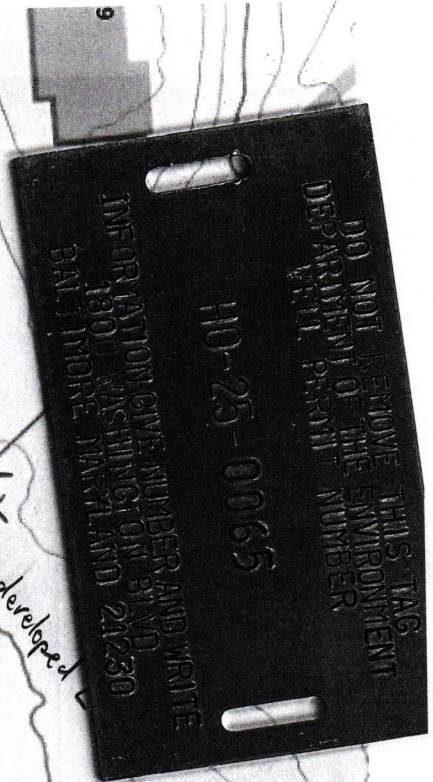 DO NOT REMOVE THIS TAG
DEPARTMENT OF THE ENVIRONMENT
WELL PERMIT NUMBER
HO-25-0065
INFORMATION GIVE NUMBER AND WRITE
1800 WASHINGTON BLVD
BALTIMORE MARYLAND 21230
developed
9